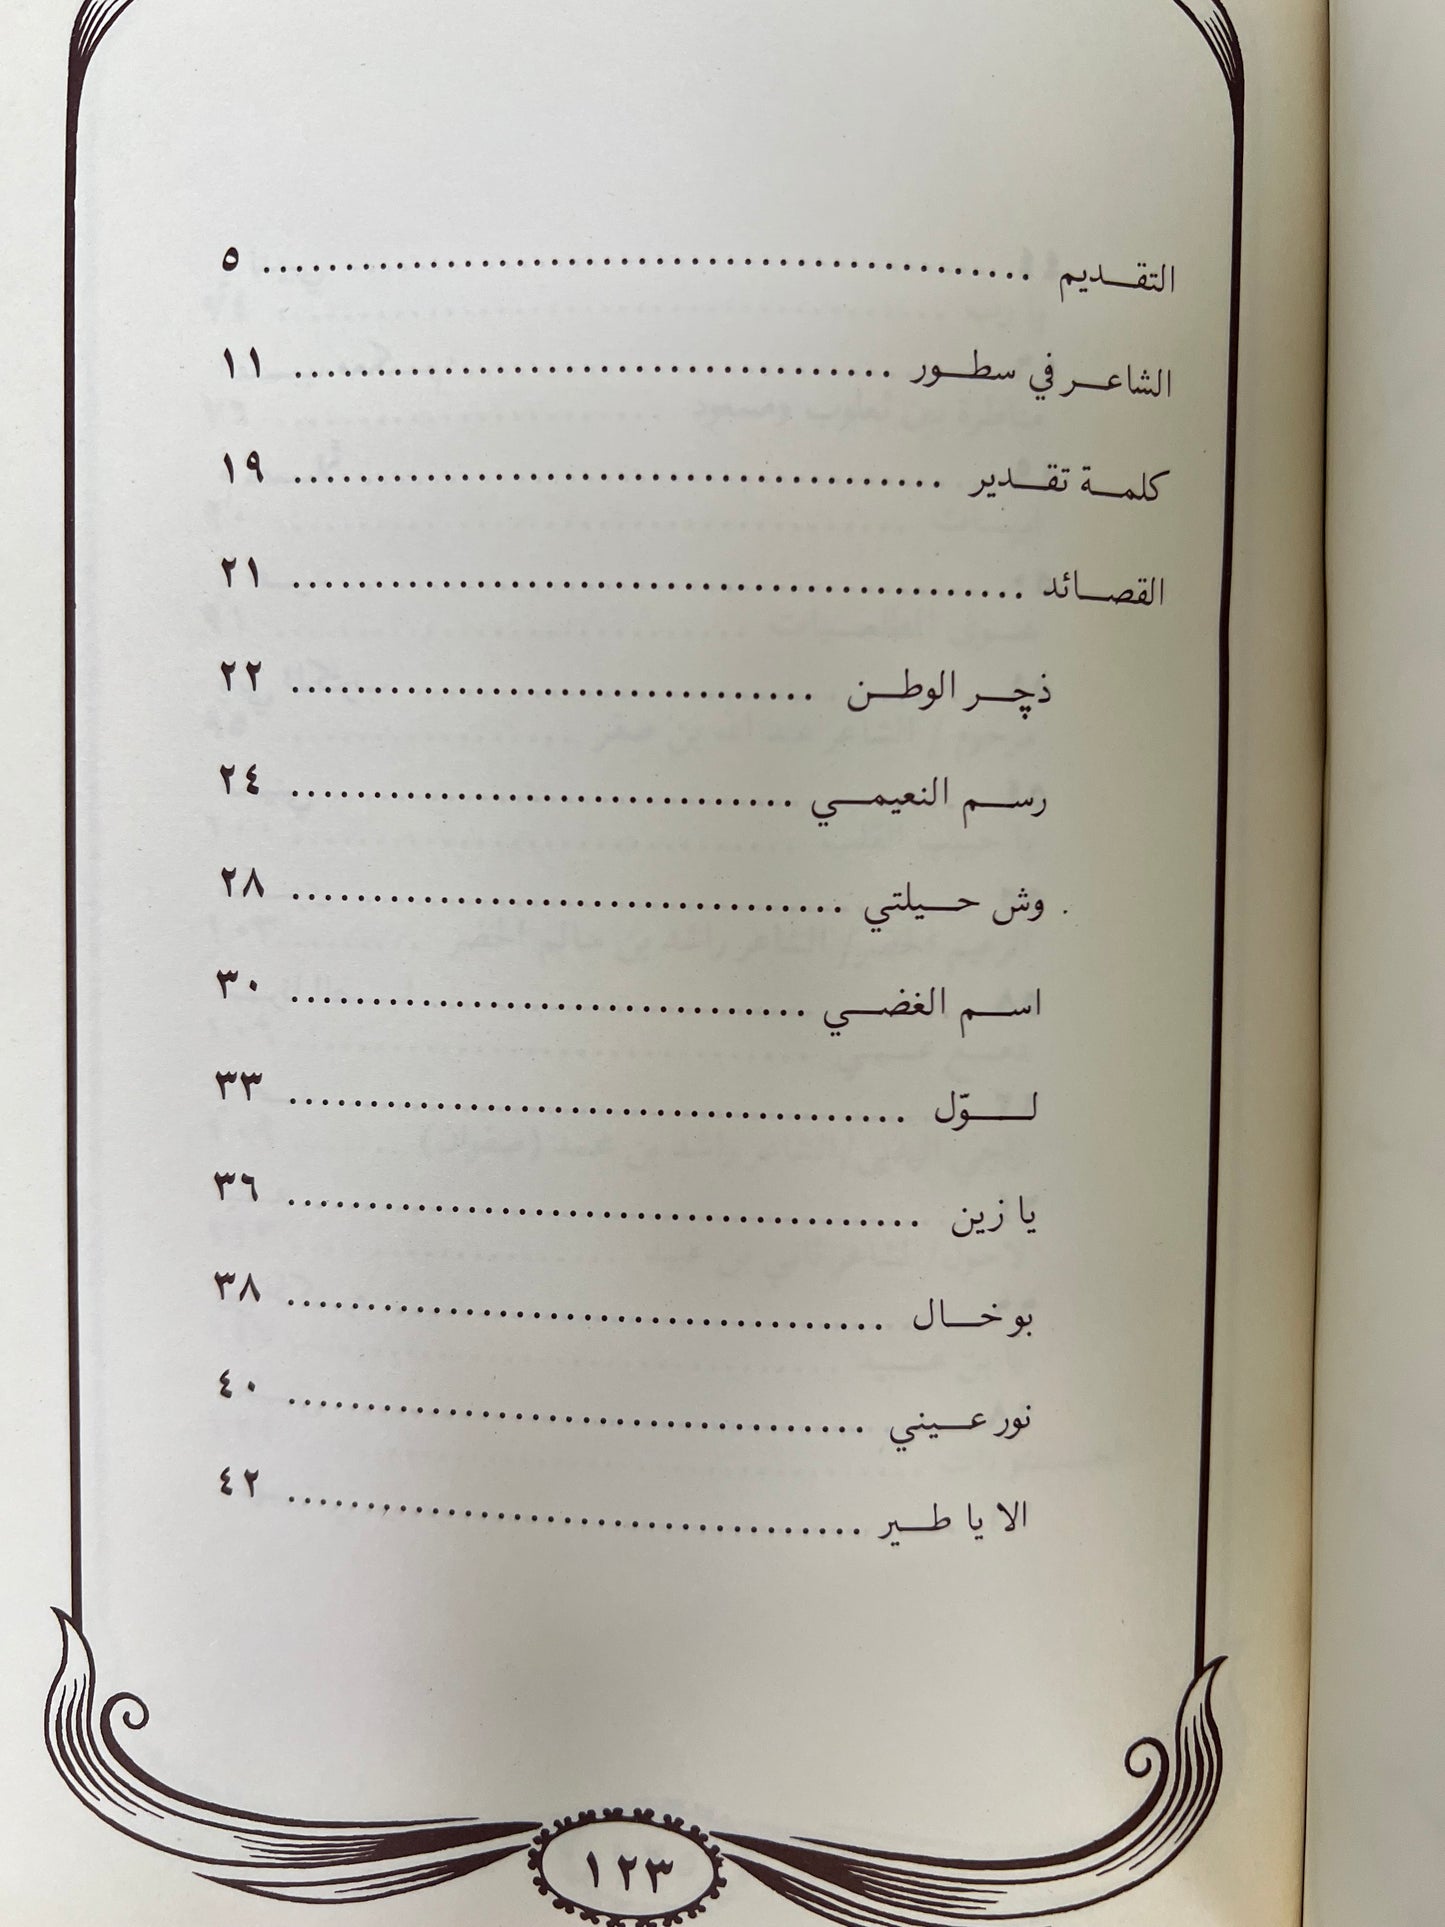 التقديم ..... ٥
الشاعر في سطور ..... ١١
كلمة تقدير ..... ١٩
القصائد ..... ٢١
ذچر الوطن ..... ٢٢
رسم النعيمي ..... ٢٤
وش حيلتي ..... ٢٨
اسم الغضي ..... ٣٠
لوّل ..... ٣٣
يا زين ..... ٣٦
بو خال ..... ٣٨
نور عيني ..... ٤٠
الا يا طير ..... ٤٢
١٢٣